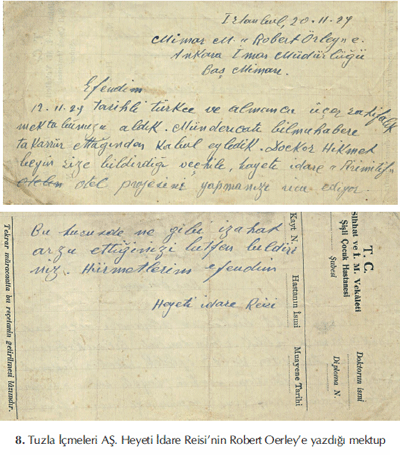 İstanbul, 20-11-29
Mimar M. "Robert Örley" e.
Ankara İmar Müdürlüğü
Baş Mimarı.
Efendim
12.11.29 tarihli türkce ve almanca üçer sahifelik
mektubunuzu aldık. Mündericatı bilmuhabere
takarrür ettiğinden kabul eyledik. Docker Hikmet
beyin size bildirdiği veçhile, heyeti idare
otel projesini yapmanızı rica ediyor.
Bu hususda ne gibi izahat
arzu ettiğinizi lütfen bildiri
niz. Hürmetlerim efendim
Heyeti idare Reisi
T. C.
Sıhhat ve İ. M. Vekâleti
Şişli Çocuk Hastanesi
Şubesi
Doktorun ismi
Diploma N.
Kayıt N.
Hastanın İsmi
Muayene Tarihi
Tekrar müracaatta bu reçetenin getirilmesi lâzımdır.
8. Tuzla İçmeleri AŞ. Heyeti İdare Reisi'nin Robert Oerley'e yazdığı mektup